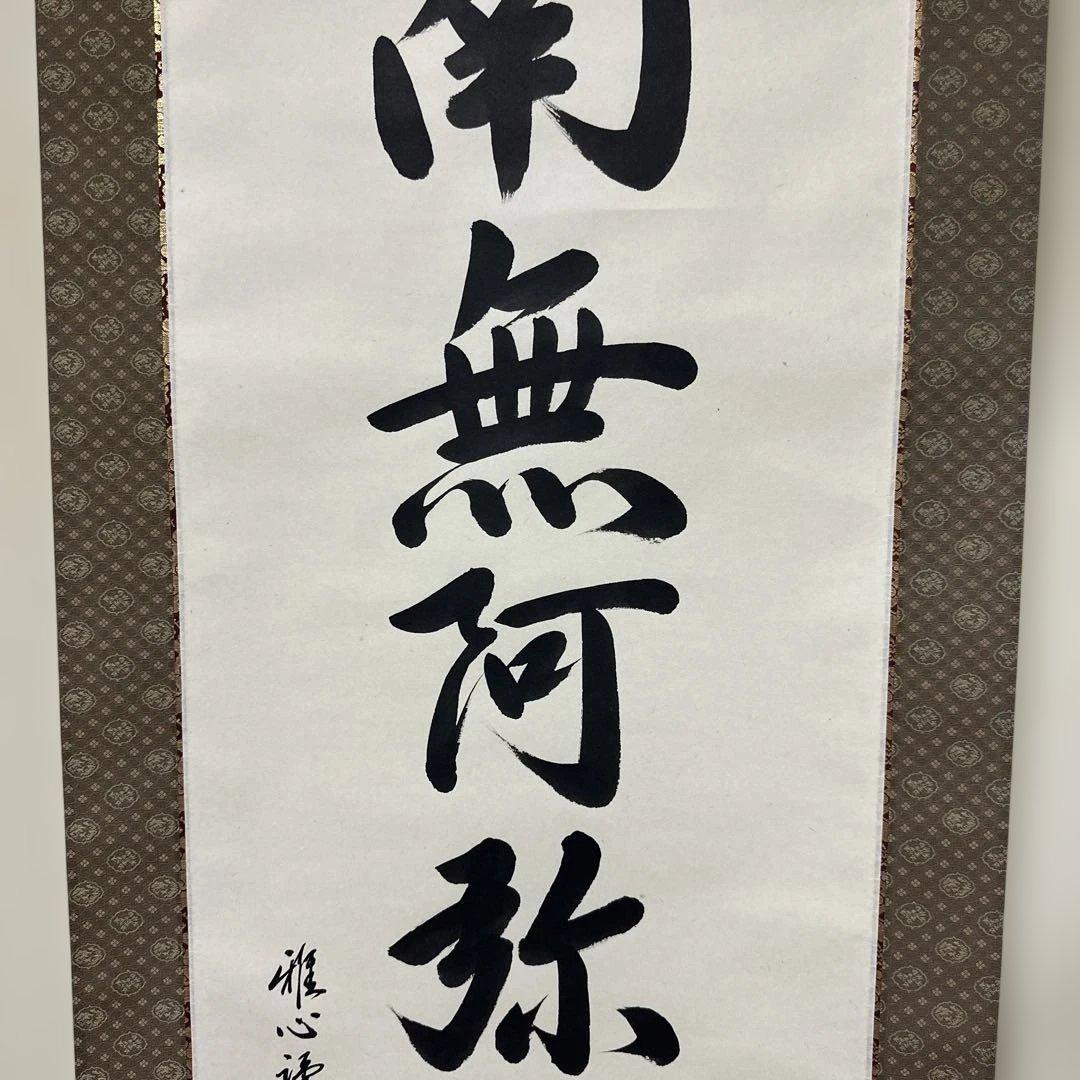 南無阿弥
雅心謹